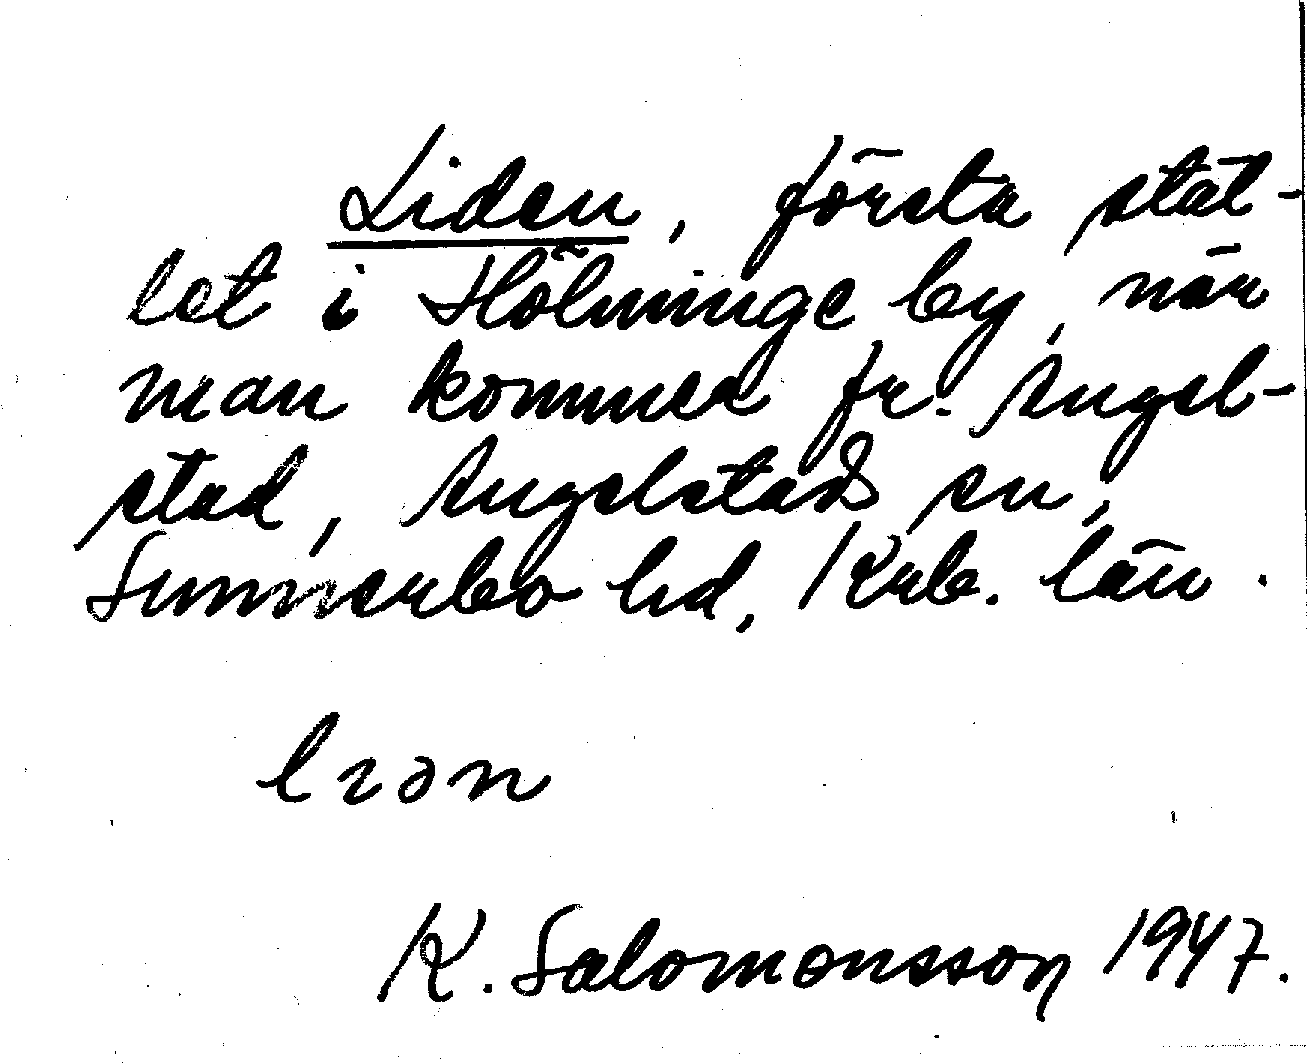 Liden, första stäl-
let i Hölminge by, när
man kommer fr. Angel-
stad, Angelstads sn,
Sunnerbo hd, Krb. län.
lıən
K. Salomonsson 1947.